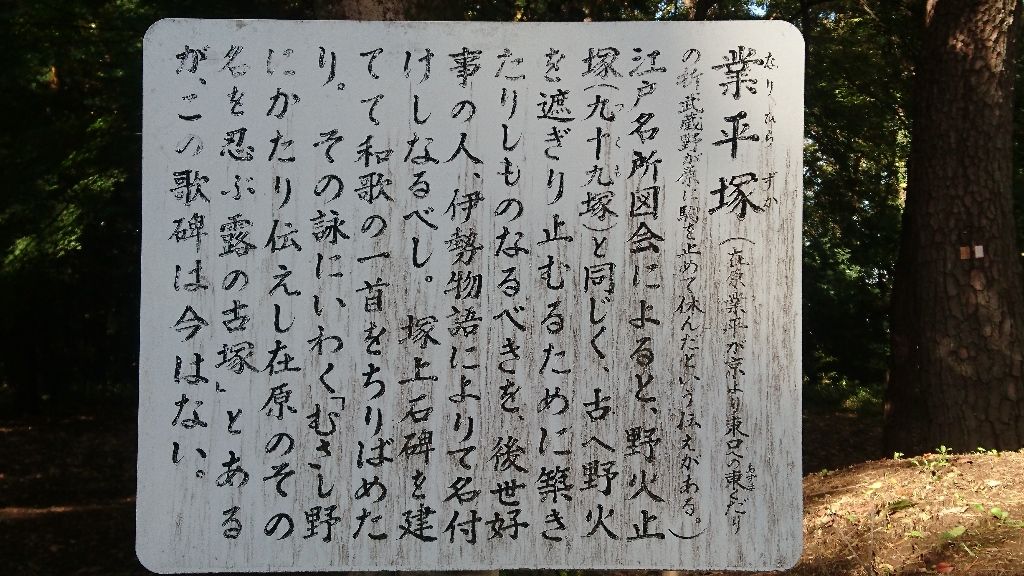 業平塚（在原業平が京より東国への東くだり
なりひらずか
あずま
の折武蔵野が原に駒を止めて休んだという伝えがある。）
江戸名所図会によると、野火止
塚（九十九塚）と同じく、古へ野火
つくも
を遮ぎり止むるために築き
たりしものなるべきを、後世好
事の人、伊勢物語によりて名付
けしなるべし。塚上石碑を建
てて和歌の一首をちりばめた
り。その詠にいわく「むさし野
にかたり伝えし在原のその
名を忍ぶ露の古塚」とある
が、この歌碑は今はない。